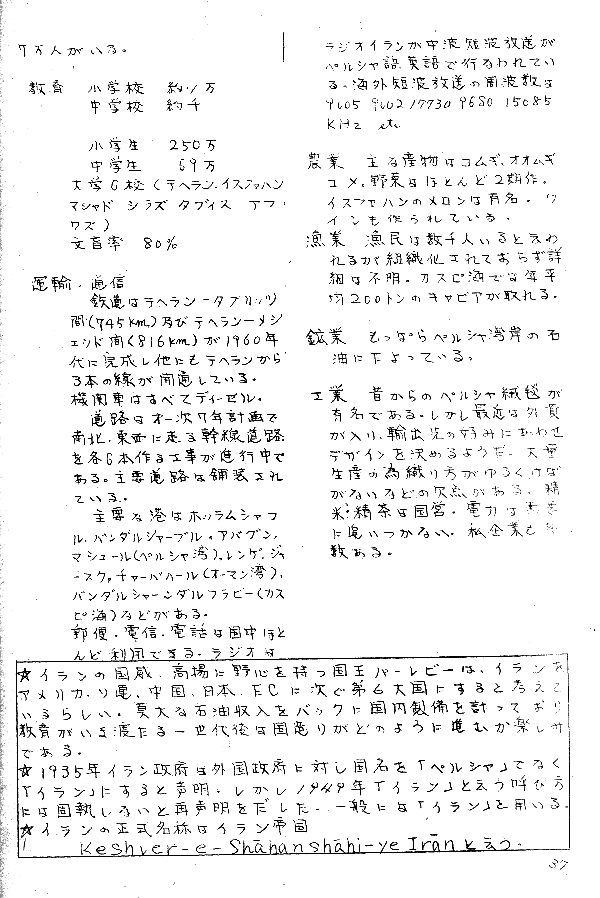 7万人がいる。
教育 小学校 約1万
中学校 約千
小学生 250万
中学生 69万
大学6校(テヘラン.イスファハン
マシャド シラズ タブィス アフ
ワズ)
文盲率 80%
運輸・通信
鉄道はテヘラン-タブリッツ
間(745km)及びテヘラン-メシ
ェッド間(816km)が1960年
代に完成し他にもテヘランから
3本の線が開通している。
機関車はすべてディーゼル。
道路は第一次7年計画で
南北、東西に走る幹線道路
を各6本作る工事が進行中で
ある。主要道路は舗装され
ている。
主要な港はホッラムシャフ
ル.バンダルシャープル.アバダン.
マシュール(ペルシャ湾)、レンゲ、ジャ
ースク、チャーバハール(オーマン湾)、
バンダルシャー、
ピ海)などがある。
郵便・電信・電話は国中ほと
んど利用できる。ラジオは
ラジオイランが中波短波放送が
ペルシャ語英語で行るわれてい
る。海外短波放送の周波数は
9605 9602 17730 9680 15085
KHz etc
農業 主な産物はコムギ、オオムギ
コメ、野菜はほとんど2期作。
イスファハンのメロンは有名。ワ
インも作られている。
漁業 漁民は数千人いると云わ
れるが組織化されておらず詳
細は不明。カスピ海では年平
均200トンのキャビアが取れる。
鉱業 もっぱらペルシャ湾岸の石
油によっている。
工業 昔からのペルシャ絨毯が
有名である。しかし最近は外貨
が入り、輸出先の好みにあわせ
デザインを決めるようだ。大量
生産の為織り方がゆるくけば
がないなどの欠点がある。精
米、精茶は国営。電力は
に追いつかない。私企業も
数ある。
☆イランの国威.高揚に野心を持つ国王パーレビーは、イランを
アメリカ.ソ連.中国.日本.ECに次ぐ第6大国にすると考えて
いるらしい。莫大な石油収入をバックに国内整備を計っており
教育がいき渡たる一世代後は国造りがどのように進むか楽しみ
である。
☆1935年イラン政府は外国政府に対し国名を「ペルシャ」でなく
「イラン」にすると声明.しかし1949年「イラン」と云う呼び方
には固執しないと再声明をだした...一般には「イラン」を用いる.
☆イランの正式名称はイラン帝国
Keshver-e-Shāhanshāhi-ye Irānと云う.
37